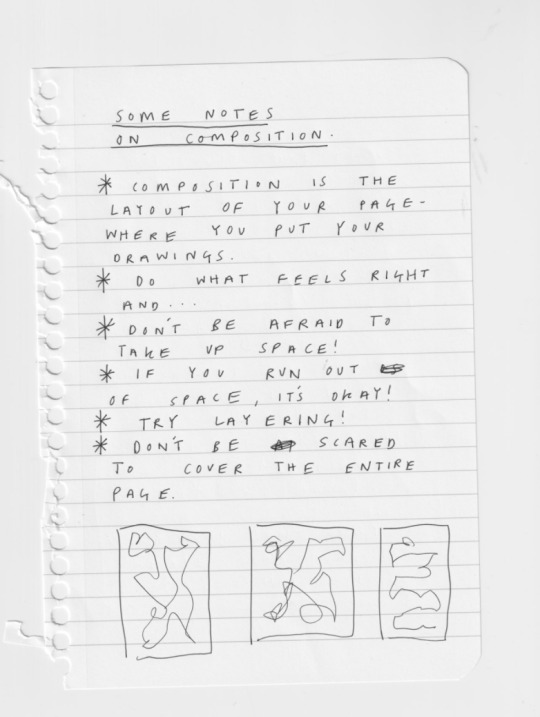 SOME NOTES
ON COMPOSITION.
* COMPOSITION IS THE
LAYOUT OF YOUR PAGE-
WHERE YOU PUT YOUR
DRAWINGS.
* DO WHAT FEELS RIGHT
AND...
* DON'T BE AFRAID TO
TAKE UP SPACE!
* IF YOU RUN OUT
OF SPACE, IT'S OKAY!
* TRY LAYERING!
* DON'T BE SCARED
TO COVER THE ENTIRE
PAGE.